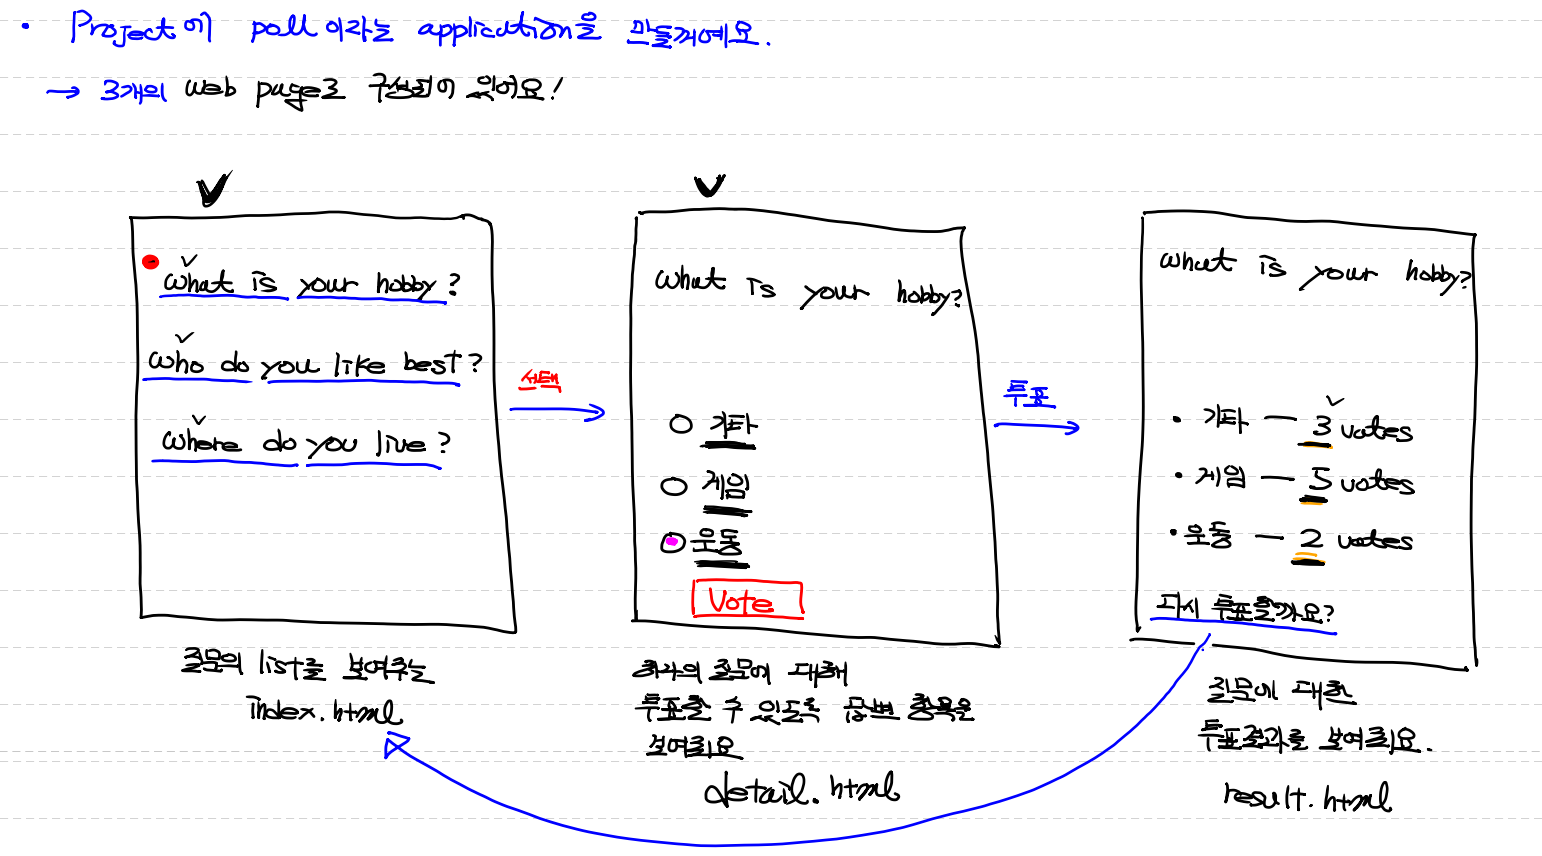 • Project에 poll 이라는 application을 만들꺼예요.
→ 3개의 web page로 구성되어 있어요!
What is your hobby?
Who do you like best?
Where do you live?
질문의 list를 보여주는
index.html
선택
What is your hobby?
기타
게임
운동
Vote
각각의 질문에 대해
투표할 수 있도록 답변 항목을
보여줘요
detail.html
투표
What is your hobby?
• 기타 — 3 votes
• 게임 — 5 votes
• 운동 — 2 votes
다시 투표할까요?
질문에 대한
투표결과를 보여줘요.
result.html